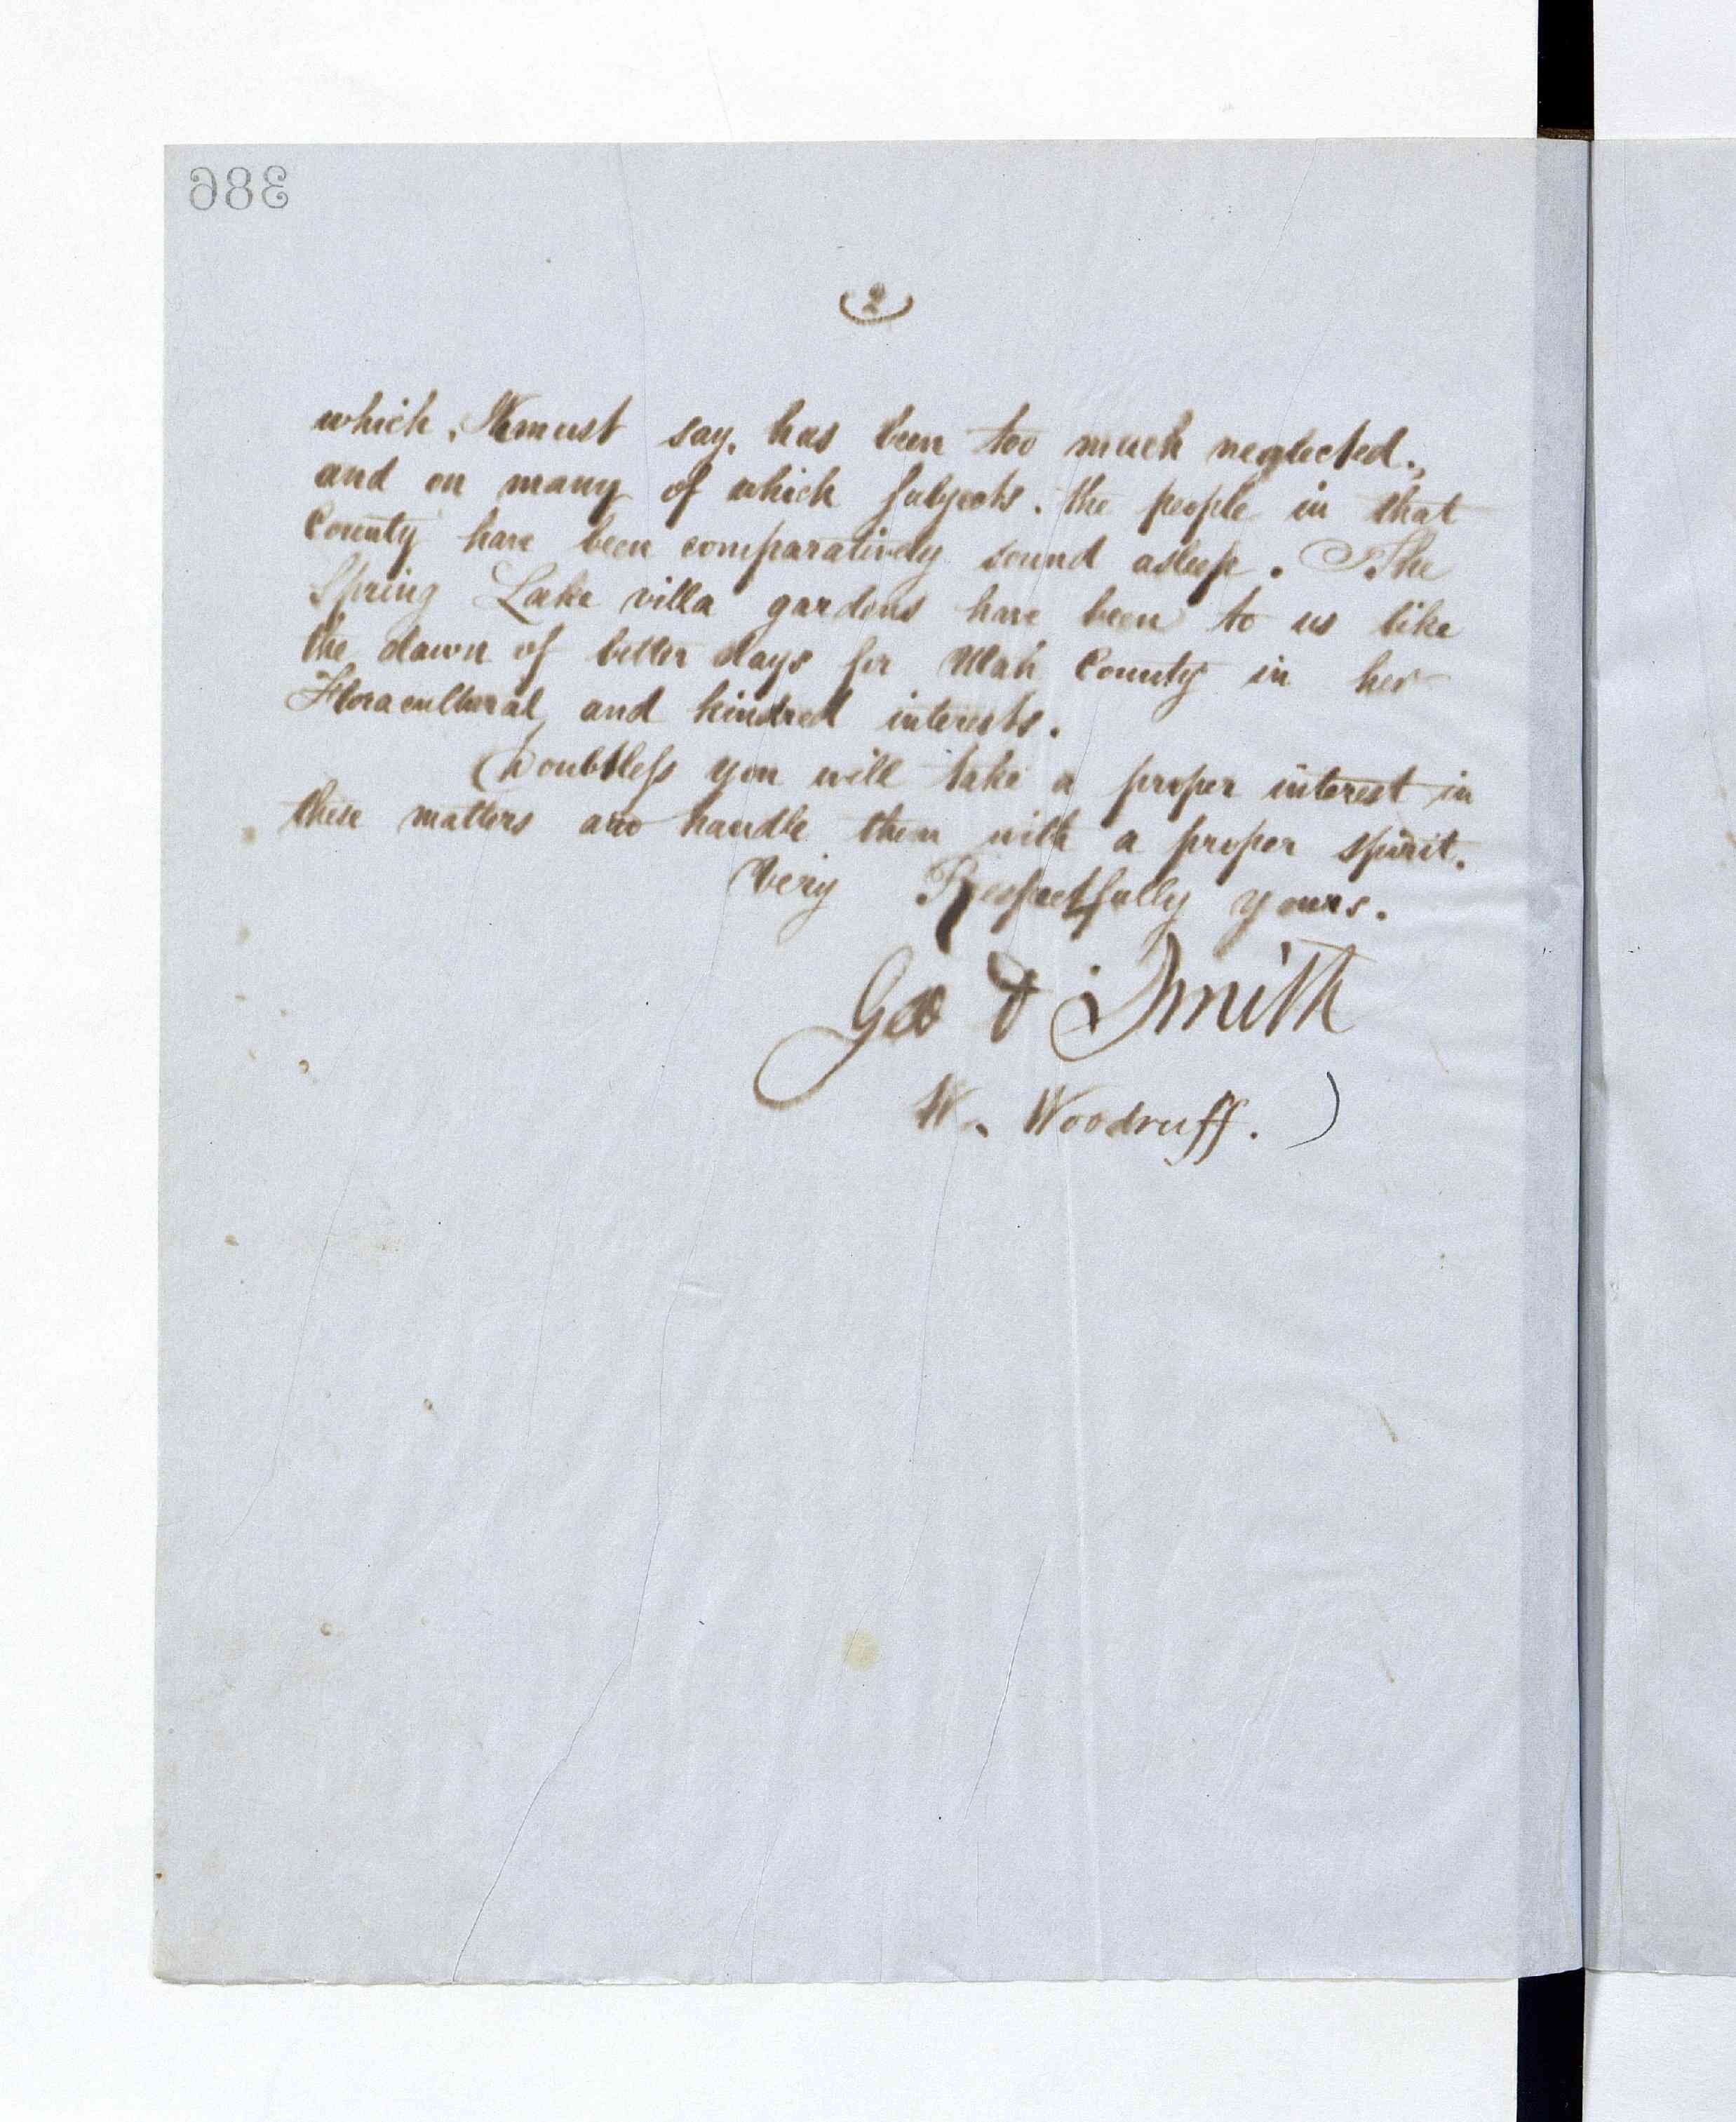 386
(2)
which, We must say, has been too much neglected.,
and on many of which subjects. the people in that
County have been comparatively sound asleep. The
Spring Lake villa gardens have been to us like
the dawn of better days for Utah County in her
Floracultural, and kindred interests.
Doubtless you will take a proper interest in
these matters and handle them with a proper spirit.
Very Respectfully yours.
Geo A Smith
W. Woodruff. )